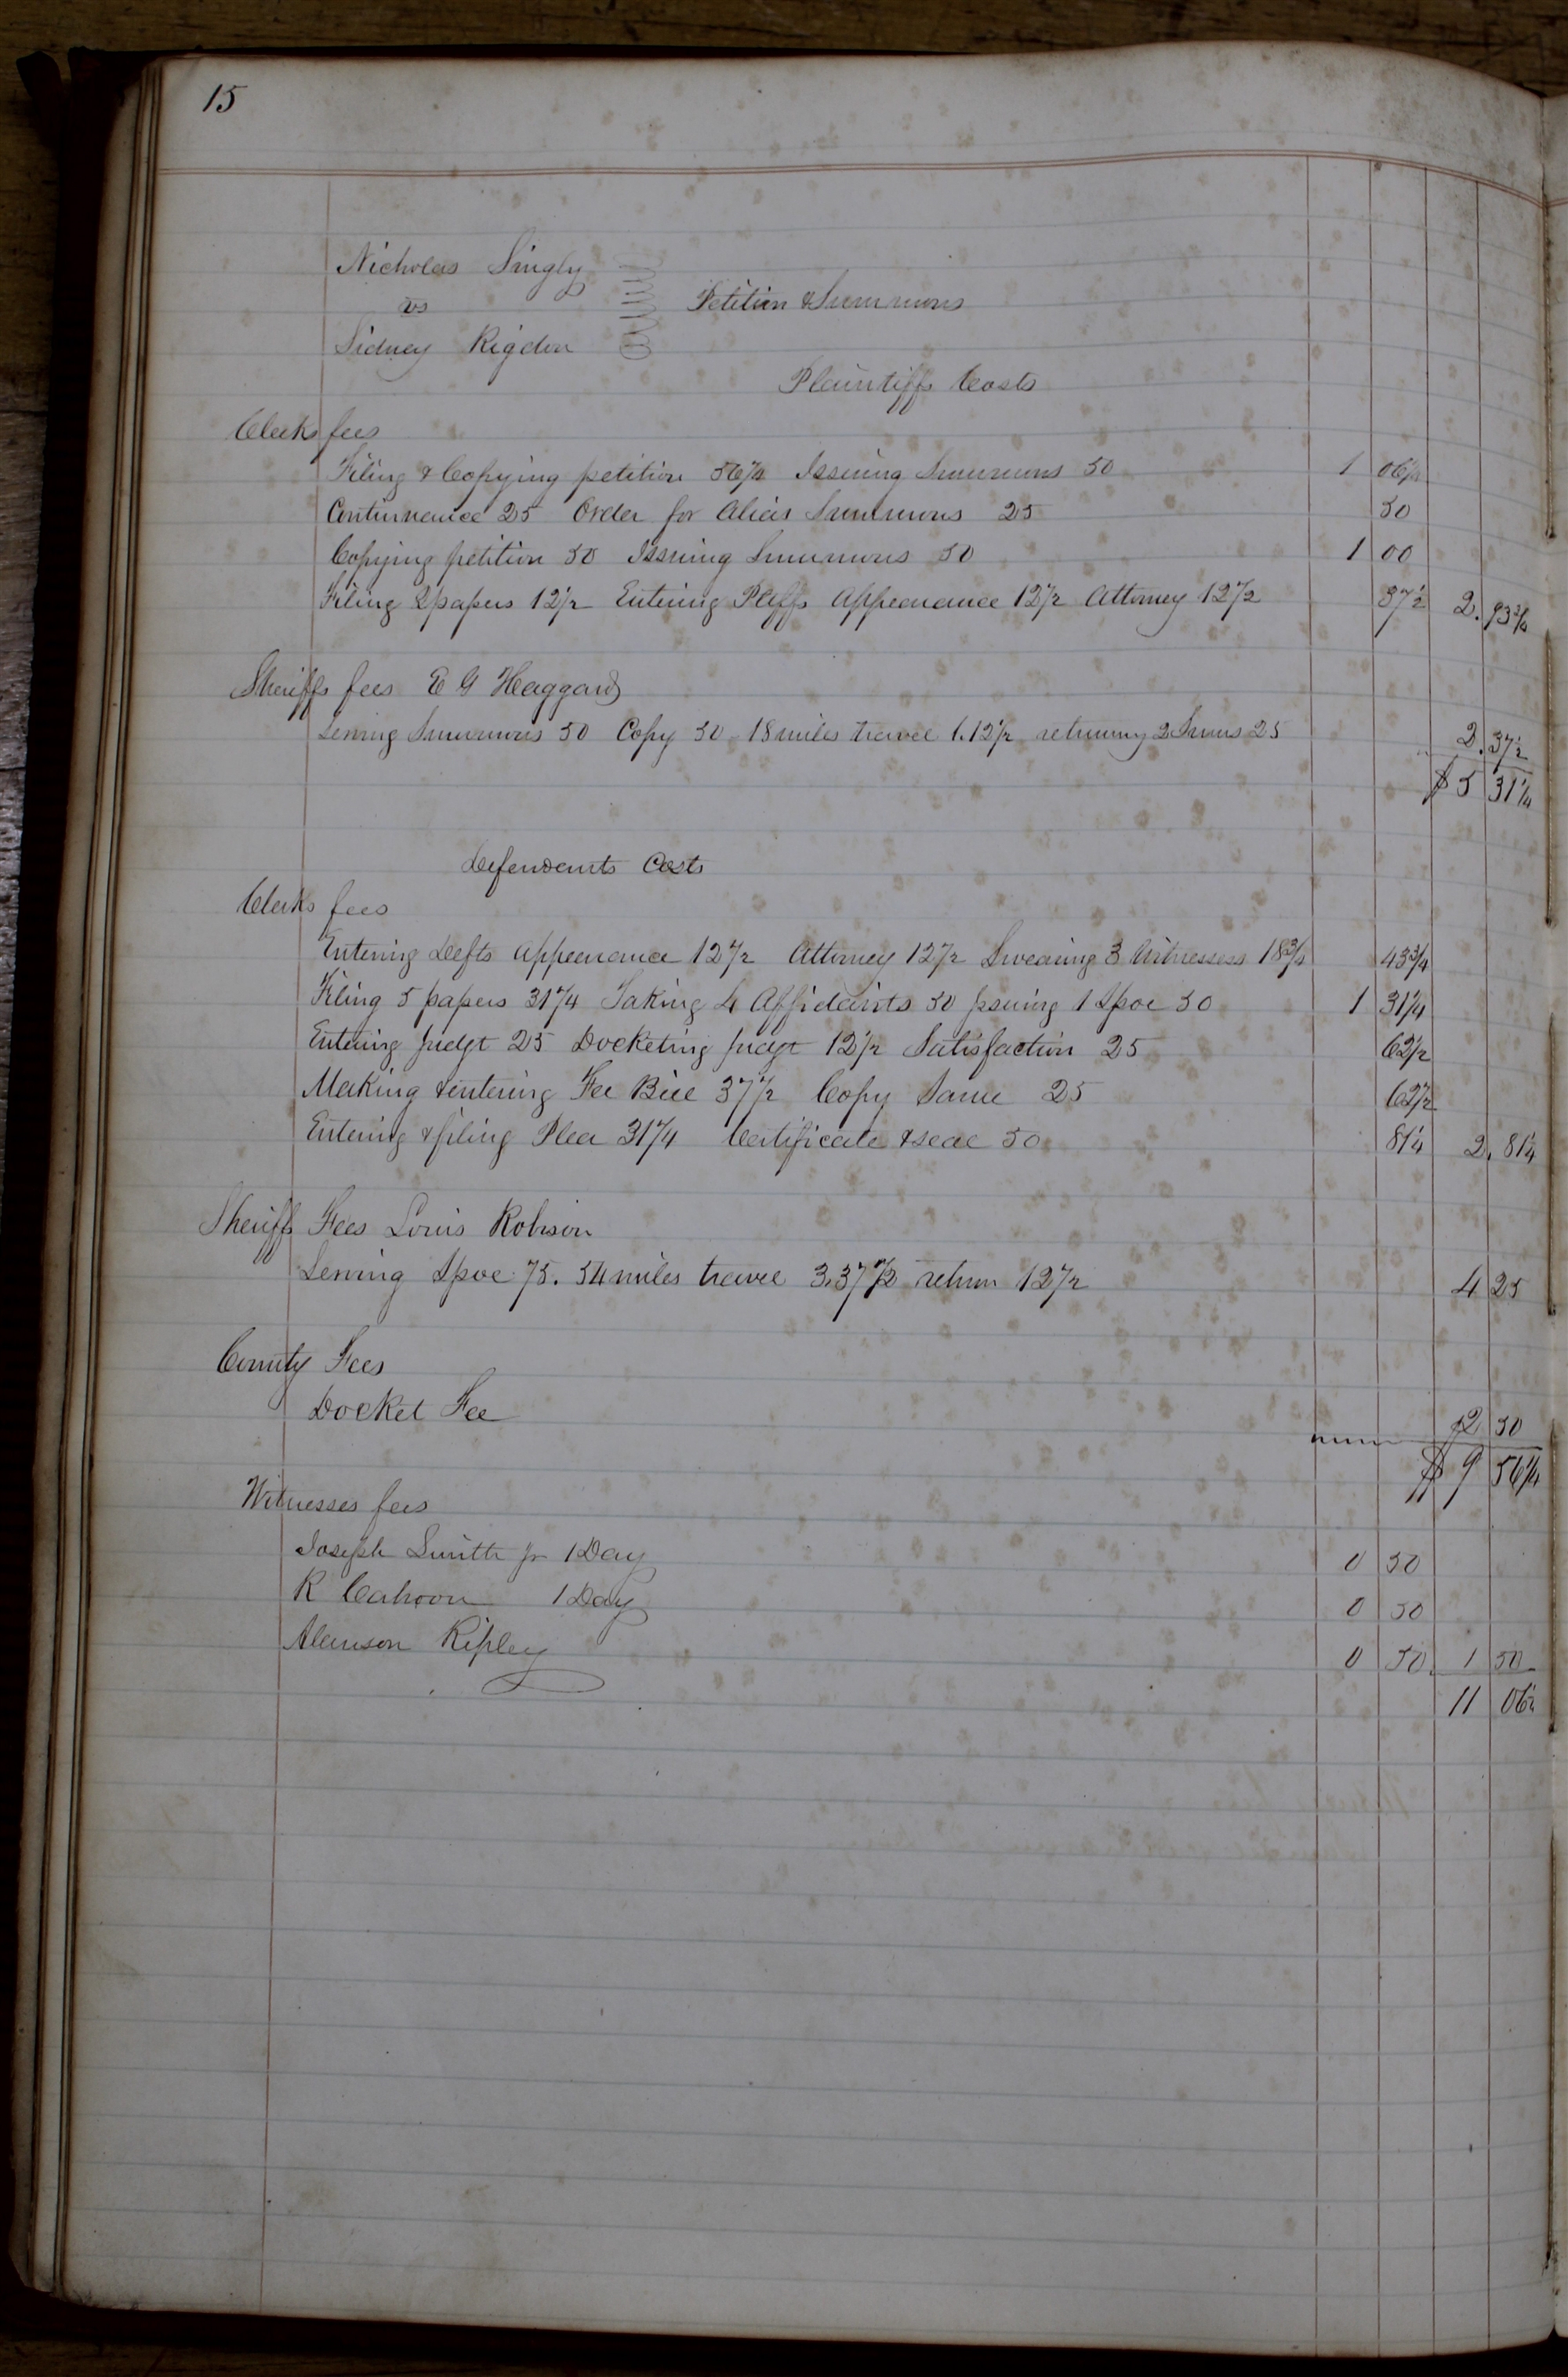 15
Nicholas Singly
vs
Petition & Summons
Sidney Rigdon
Plaintiffs Costs
Clerks fees
Filing & Copying petition 56¼ Issuing Summons 50 1 06¼
Continuance 25 Order for Alias Summons 25 50
Copying petition 50 Issuing Summons 50 1 00
Filing 2 papers 12½ Entering Plffs appearance 12½ Attorney 12½ 37½ 2.93¾
Sheriffs fees E G Haggard
Serving Summons 50 Copy 50 18 miles travel 1.12½ returning 2 Sums 25 2.37½
$5 31¼
Defendants Costs
Clerks fees
Entering Defts appearance 12½ Attorney 12½ Swearing 3 Witnesses 18¾ 43¾
Filing 5 papers 31¼ Taking 4 Affidavits 50 Issuing 1 Spoe 50 1 31¼
Entering judgt 25 Docketing judgt 12½ Satisfaction 25 62½
Making & entering Fee Bill 37½ Copy Same 25 62½
Entering & filing Plea 31¼ Certificate & seal 50 81¼ 2.81¼
Sheriffs Fees Louis Robison
Serving Spoe 75. 54 miles travel 3.37½ return 12½ 4 25
County Fees
Docket Fee 2 50
$9 56¼
Witnesses fees
Joseph Smith jr 1 Day 0 50
R Cahoon 1 Day 0 50
Alanson Ripley 0 50. 1 50
11 06¼